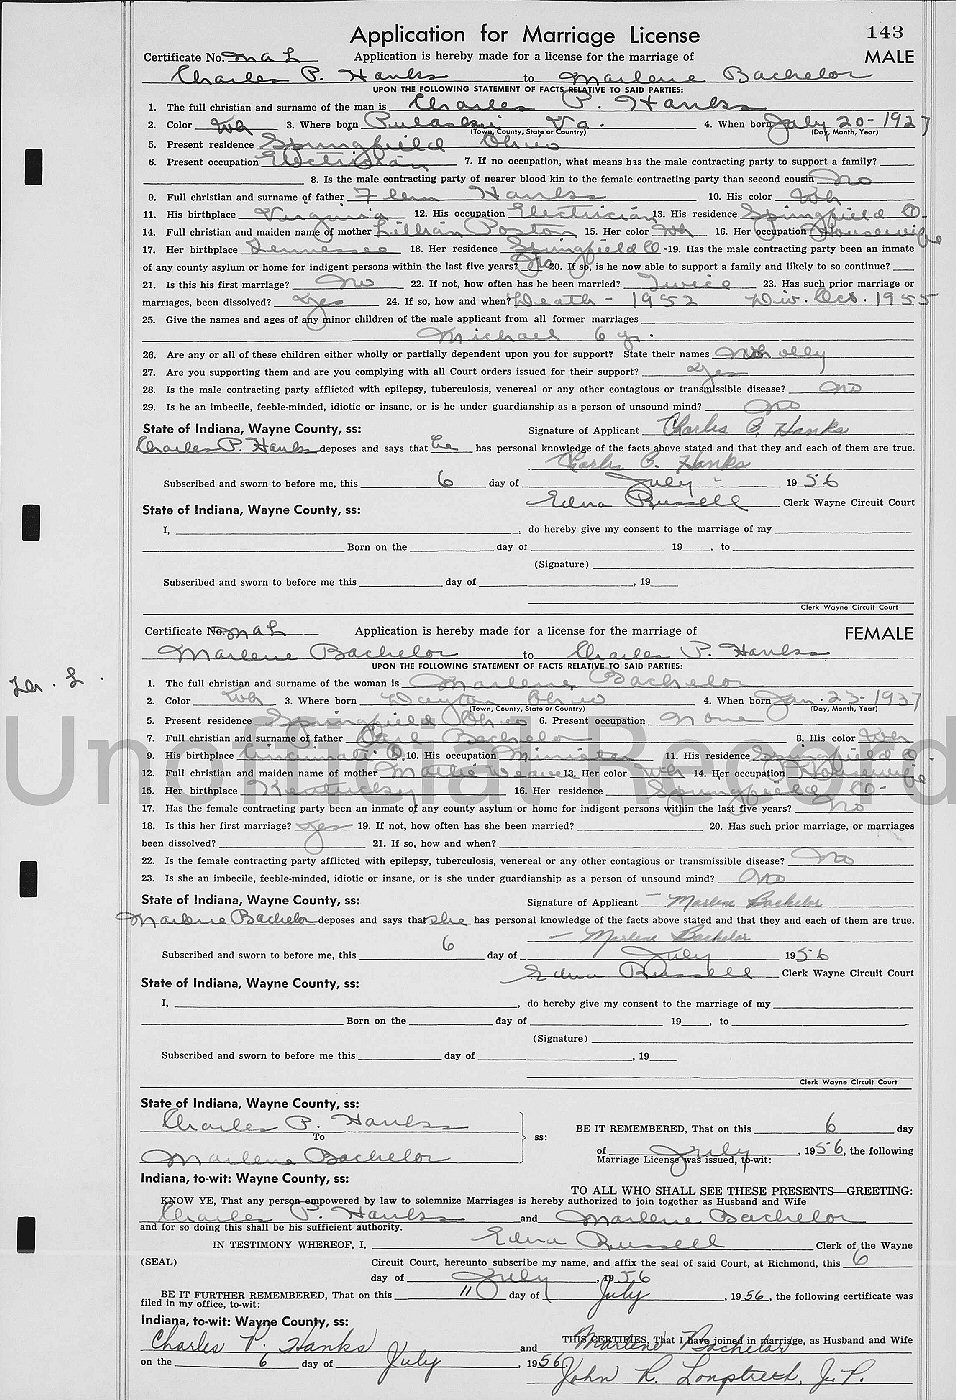 Application for Marriage License 143
Certificate No. Application is hereby made for a license for the marriage of MALE
Charles P. Hanks to Marlene Bachelor
UPON THE FOLLOWING STATEMENT OF FACTS RELATIVE TO SAID PARTIES:
1. The full christian and surname of the man is Charles P. Hanks
2. Color Wh 3. Where born Pulaski Va. 4. When born July 20-1927
(Town, County, State or Country) (Day, Month, Year)
5. Present residence Springfield Ohio
6. Present occupation Electrician 7. If no occupation, what means has the male contracting party to support a family?
8. Is the male contracting party of nearer blood kin to the female contracting party than second cousin No
9. Full christian and surname of father Flem Hanks 10. His color Wh
11. His birthplace Virginia 12. His occupation Electrician 13. His residence Springfield O.
14. Full christian and maiden name of mother Lillian Poston 15. Her color Wh 16. Her occupation Housewife
17. Her birthplace Tennessee 18. Her residence Springfield O - 19. Has the male contracting party been an inmate
of any county asylum or home for indigent persons within the last five years? No 20. If so, is he now able to support a family and likely to so continue?
21. Is this his first marriage? No 22. If not, how often has he been married? Twice 23. Has such prior marriage or
marriages, been dissolved? Yes 24. If so, how and when? Death - 1952 Div. Oct. 1955
25. Give the names and ages of any minor children of the male applicant from all former marriages
Michael 6 y.
26. Are any or all of these children either wholly or partially dependent upon you for support? State their names Wholly
27. Are you supporting them and are you complying with all Court orders issued for their support? Yes
28. Is the male contracting party afflicted with epilepsy, tuberculosis, venereal or any other contagious or transmissible disease? No
29. Is he an imbecile, feeble-minded, idiotic or insane, or is he under guardianship as a person of unsound mind? No
State of Indiana, Wayne County, ss: Signature of Applicant Charles P. Hanks
Charles P. Hanks deposes and says that he has personal knowledge of the facts above stated and that they and each of them are true.
Charles P. Hanks
Subscribed and sworn to before me, this 6 day of July 1956
Edna Russell Clerk Wayne Circuit Court
State of Indiana, Wayne County, ss:
I, , do hereby give my consent to the marriage of my
Born on the day of 19 , to
(Signature)
Subscribed and sworn to before me this day of , 19
Clerk Wayne Circuit Court
Certificate No. Application is hereby made for a license for the marriage of FEMALE
Marlene Bachelor to Charles P. Hanks
UPON THE FOLLOWING STATEMENT OF FACTS RELATIVE TO SAID PARTIES:
1. The full christian and surname of the woman is Marlene Bachelor
2. Color Wh 3. Where born Dayton Ohio 4. When born Jan. 23-1937
(Town, County, State or Country) (Day, Month, Year)
5. Present residence Springfield Ohio 6. Present occupation None
7. Full christian and surname of father Bachelor 8. His color Wh
9. His birthplace Cincinnati O. 10. His occupation Minister 11. His residence Springfield O
12. Full christian and maiden name of mother 13. Her color Wh 14. Her occupation Housewife
15. Her birthplace Kentucky 16. Her residence Springfield O-
17. Has the female contracting party been an inmate of any county asylum or home for indigent persons within the last five years? No
18. Is this her first marriage? Yes 19. If not, how often has she been married? 20. Has such prior marriage, or marriages
been dissolved? 21. If so, how and when?
22. Is the female contracting party afflicted with epilepsy, tuberculosis, venereal or any other contagious or transmissible disease? No
23. Is she an imbecile, feeble-minded, idiotic or insane, or is she under guardianship as a person of unsound mind? No
State of Indiana, Wayne County, ss: Signature of Applicant Marlene Bachelor
Marlene Bachelor deposes and says that she has personal knowledge of the facts above stated and that they and each of them are true.
Marlene Bachelor
Subscribed and sworn to before me, this 6 day of July 1956
Edna Russell Clerk Wayne Circuit Court
State of Indiana, Wayne County, ss:
I, , do hereby give my consent to the marriage of my
Born on the day of 19 , to
(Signature)
Subscribed and sworn to before me this day of , 19
Clerk Wayne Circuit Court
State of Indiana, Wayne County, ss:
Charles P. Hanks
To ss: BE IT REMEMBERED, That on this 6 day
Marlene Bachelor of July , 1956, the following
Marriage License was issued, to-wit:
Indiana, to-wit: Wayne County, ss:
TO ALL WHO SHALL SEE THESE PRESENTS—GREETING:
KNOW YE, That any person empowered by law to solemnize Marriages is hereby authorized to join together as Husband and Wife
Charles P. Hanks and Marlene Bachelor
and for so doing this shall be his sufficient authority.
IN TESTIMONY WHEREOF, I, Edna Russell Clerk of the Wayne
(SEAL) Circuit Court, hereunto subscribe my name, and affix the seal of said Court, at Richmond, this 6
day of July , 1956
BE IT FURTHER REMEMBERED, That on this 11 day of July , 1956, the following certificate was
filed in my office, to-wit:
Indiana, to-wit: Wayne County, ss:
THIS CERTIFIES, That I have joined in marriage, as Husband and Wife
Charles P. Hanks and Marlene Bachelor
on the 6 day of July , 1956 John R. Longstreth, J.P.
Unofficial Record